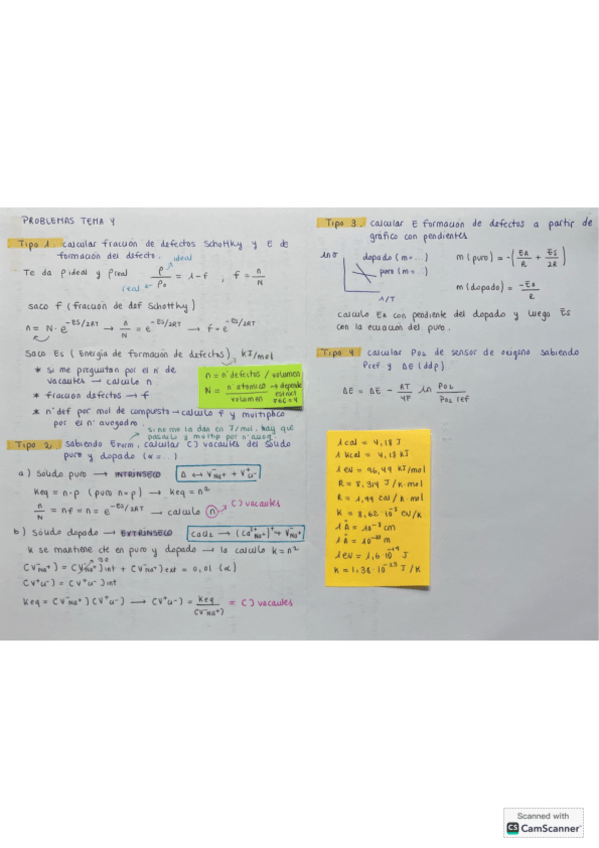 PROBLEMAS TEMA 4
Tipo 1. calcular fracción de defectos Schottky y E de
formación del defecto.
ideal
Te da ρ ideal y ρ real  ρ/ρ₀ = 1-f , f = n/N
real
saco f (fracción de def Schottky)
n = N · e^(-ES/2RT) → n/N = e^(-ES/2RT) → f = e^(-ES/2RT)
Saco Es (Energía de formación de defectos), kJ/mol
* si me preguntan por el nº de
vacantes → calculo n.
* fracción defectos → f
* nº def por mol de compuesto → calculo f y multiplico
por el nº avogadro.
n = nº defectos / volumen
N = nº atómico / volumen → depende
estruct
FCC = 4
si no me la dan en J/mol, hay que
pasarlo y multip por nº avog.
Tipo 2. Sabiendo Eform, calcular [] vacantes del sólido
puro y dopado (α = ...)
a) Sólido puro → INTRÍNSECO  Δ ↔ V⁻Na⁺ + V⁺Cl⁻
Keq = n·p (puro n=p) → Keq = n²
n/N = nf = n = e^(-ES/2RT) → calculo n [] vacantes
b) Sólido dopado → EXTRÍNSECO
K se mantiene cte en puro y dopado → la calculo k = n²
[V⁻Na⁺] = [V⁻Na⁺]int + [V⁻Na⁺]ext = 0,01 (α)
[V⁺Cl⁻] = [V⁺Cl⁻]int
Keq = [V⁻Na⁺][V⁺Cl⁻] → [V⁺Cl⁻] = Keq/[V⁻Na⁺] = [] vacantes
Tipo 3. calcular E formación de defectos a partir de
gráfico con pendientes
ln σ
dopado (m = ...)
puro (m = ...)
1/T
m (puro) = -(Ea/R + Es/2R)
m (dopado) = -Ea/R
calculo Ea con pendiente del dopado y luego Es
con la ecuación del puro.
Tipo 4. calcular PO₂ de sensor de oxígeno sabiendo
Pref y ΔE (ddp).
ΔE = ΔE - RT/4F ln PO₂/PO₂ ref
1 cal = 4,18 J
1 kcal = 4,18 kJ
1 eV = 96,49 kJ/mol
R = 8,314 J/K·mol
R = 1,99 cal/K·mol
K = 8,62·10⁻⁵ eV/K
1 Å = 10⁻⁸ cm
1 Å = 10⁻¹⁰ m
1 eV = 1,6·10⁻¹⁹ J
K = 1,38·10⁻²³ J/K
Scanned with
CS CamScanner